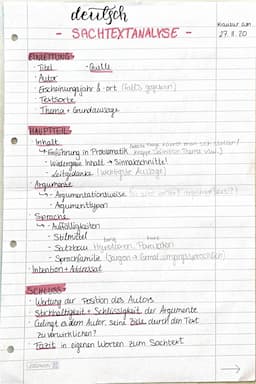 deutsch
- SACHTEXTANALYSE -
Klausur am
27.11.20
EINLEITUNG
- Titel - Quelle
- Autor
- Erscheinungsjahr & -ort (falls gegeben)
- Textsorte
- Thema + Grundaussage
HAUPTTEIL
Inhalt
↳ Einführung in Problematik
- Wiedergabe Inhalt → Sinnabschnitte!
- Leitgedanke (wichtigste Aussage)
Argumente
↳ - Argumentationsweise
- Argumenttypen
Sprache
↳ - Auffälligkeiten
- Stilmittel
- Satzbau Hypotaxen Parataxen
- Sprachfamilie (Jargon → formal, umgangssprachlich)
- Intention + Adressat
SCHLUSS
- Wertung der Position des Autors
- Stichhaltigkeit + Schlüssigkeit der Argumente
- Gelingt es dem Autor, seine Ziele durch den Text
zu verwirklichen?
- Fazit in eigenen Worten zum Sachtext